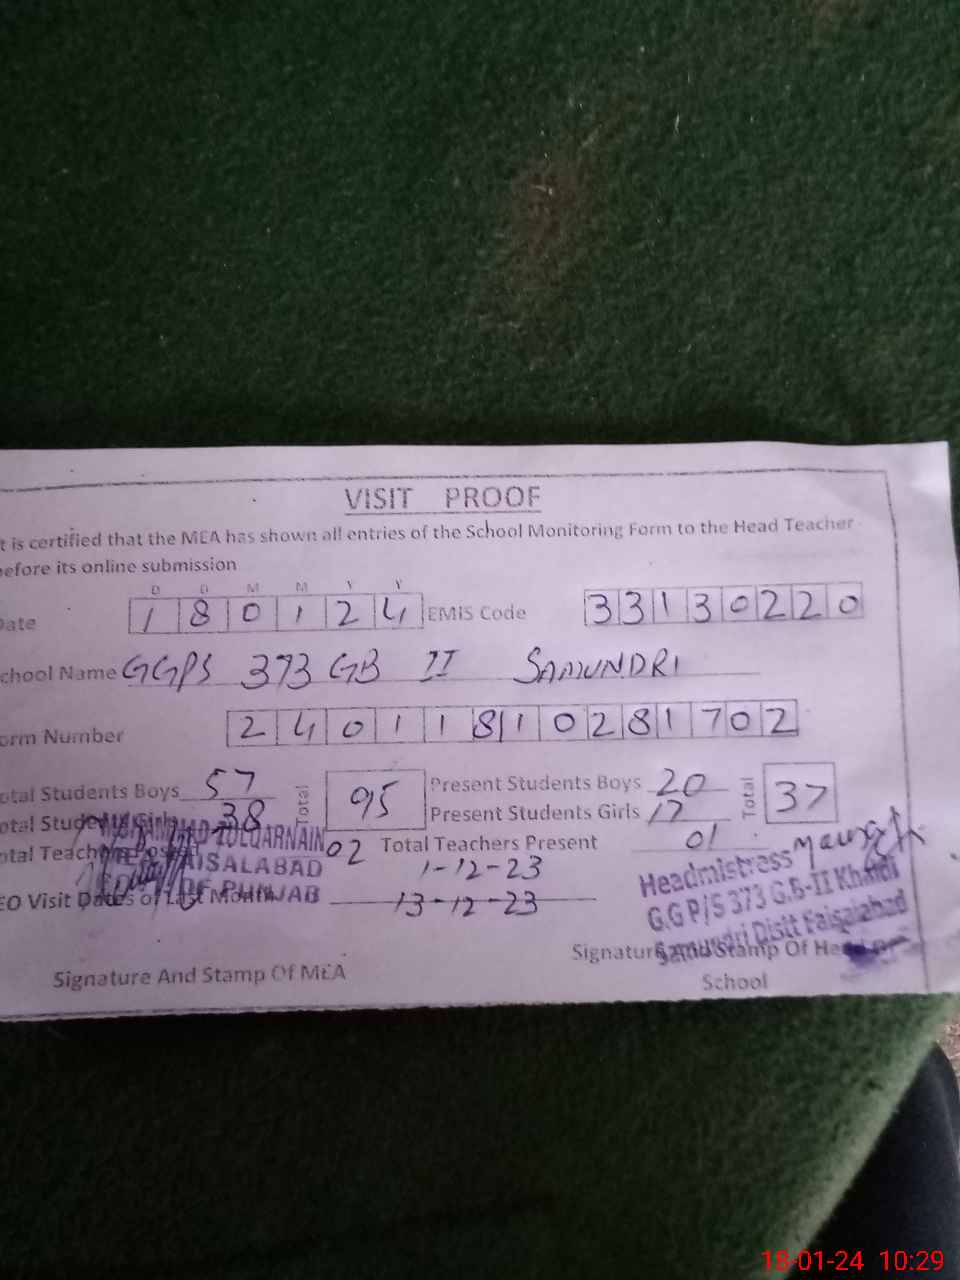 VISIT PROOF
t is certified that the MEA has shown all entries of the School Monitoring Form to the Head Teacher
before its online submission
D D M M Y Y
Date 180124 EMIS Code 33130220
chool Name GGPS 373 GB II SAMUNDRI
orm Number 24011810281702
otal Students Boys 57 Total 95 Present Students Boys 20 Total 37
otal Students Girls 38 Present Students Girls 17
otal Teachers 02 Total Teachers Present 01
ZULQARNAIN
FAISALABAD
OF PUNJAB
1-12-23
EO Visit Dates of Last Month 13-12-23
Headmistress
G.G P/S 373 G.B-II Khaldi
Samundri Distt Faisalabad
Signature And Stamp Of MEA
Signature And Stamp Of Head
School
18-01-24 10:29